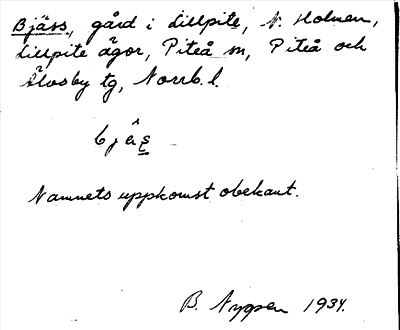 Bjäss, gård i Lillpite, N. Holmen,
Lillpite ägor, Piteå sn, Piteå och
Älvsby tg, Norrb. l.
Namnets uppkomst obekant.
B. Nygren 1934.